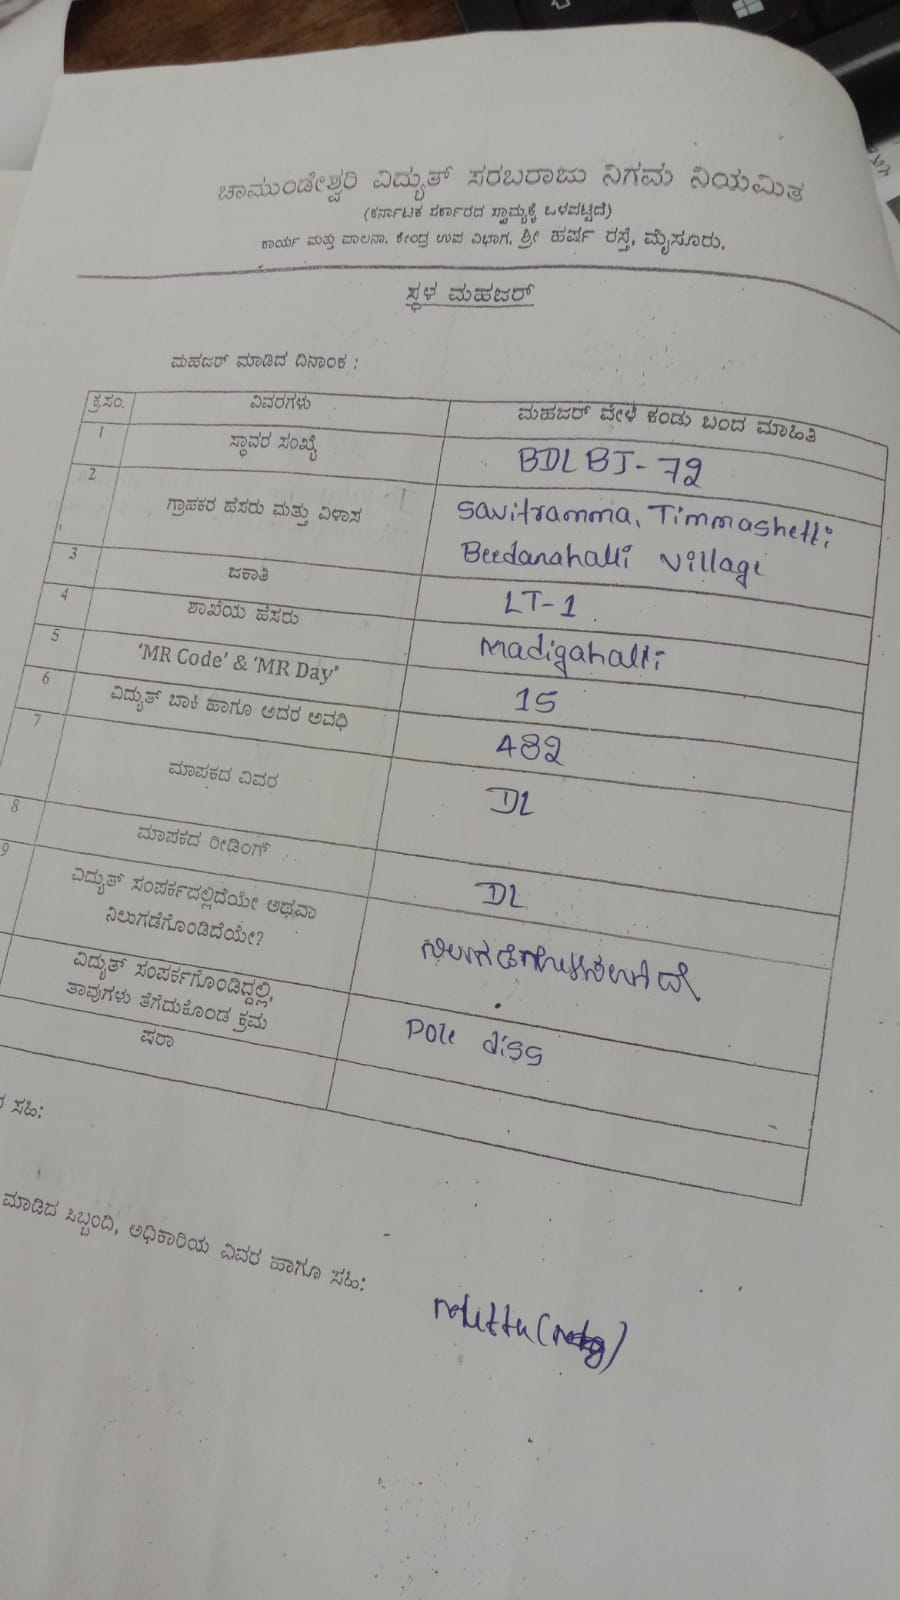 ಚಾಮುಂಡೇಶ್ವರಿ ವಿದ್ಯುತ್ ಸರಬರಾಜು ನಿಗಮ ನಿಯಮಿತ
(ಕರ್ನಾಟಕ ಸರ್ಕಾರದ ಸ್ವಾಮ್ಯಕ್ಕೆ ಒಳಪಟ್ಟಿದೆ)
ಕಾರ್ಯ ಮತ್ತು ಪಾಲನಾ, ಕೇಂದ್ರ ಉಪ ವಿಭಾಗ, ಶ್ರೀ ಹರ್ಷ ರಸ್ತೆ, ಮೈಸೂರು.
ಸ್ಥಳ ಮಹಜರ್
ಮಹಜರ್ ಮಾಡಿದ ದಿನಾಂಕ :
ಕ್ರ.ಸಂ. ವಿವರಗಳು ಮಹಜರ್ ವೇಳೆ ಕಂಡು ಬಂದ ಮಾಹಿತಿ
1 ಸ್ಥಾವರ ಸಂಖ್ಯೆ BDLBJ-72
2 ಗ್ರಾಹಕರ ಹೆಸರು ಮತ್ತು ವಿಳಾಸ Savitramma, Timmashetti
Beedanahalli village
3 ಜಕಾತಿ LT-1
4 ಶಾಖೆಯ ಹೆಸರು Madigahalli
5 'MR Code' & 'MR Day' 15
6 ವಿದ್ಯುತ್ ಬಾಕಿ ಹಾಗೂ ಅದರ ಅವಧಿ 482
7 ಮಾಪಕದ ವಿವರ DL
8 ಮಾಪಕದ ರೀಡಿಂಗ್ DL
9 ವಿದ್ಯುತ್ ಸಂಪರ್ಕದಲ್ಲಿದೆಯೇ ಅಥವಾ
ನಿಲುಗಡೆಗೊಂಡಿದೆಯೇ?
ವಿದ್ಯುತ್ ಸಂಪರ್ಕಗೊಂಡಿದ್ದಲ್ಲಿ,
ತಾವುಗಳು ತೆಗೆದುಕೊಂಡ ಕ್ರಮ Pole diss
ಷರಾ
ಸಹಿ:
ಮಾಡಿದ ಸಿಬ್ಬಂದಿ, ಅಧಿಕಾರಿಯ ವಿವರ ಹಾಗೂ ಸಹಿ: